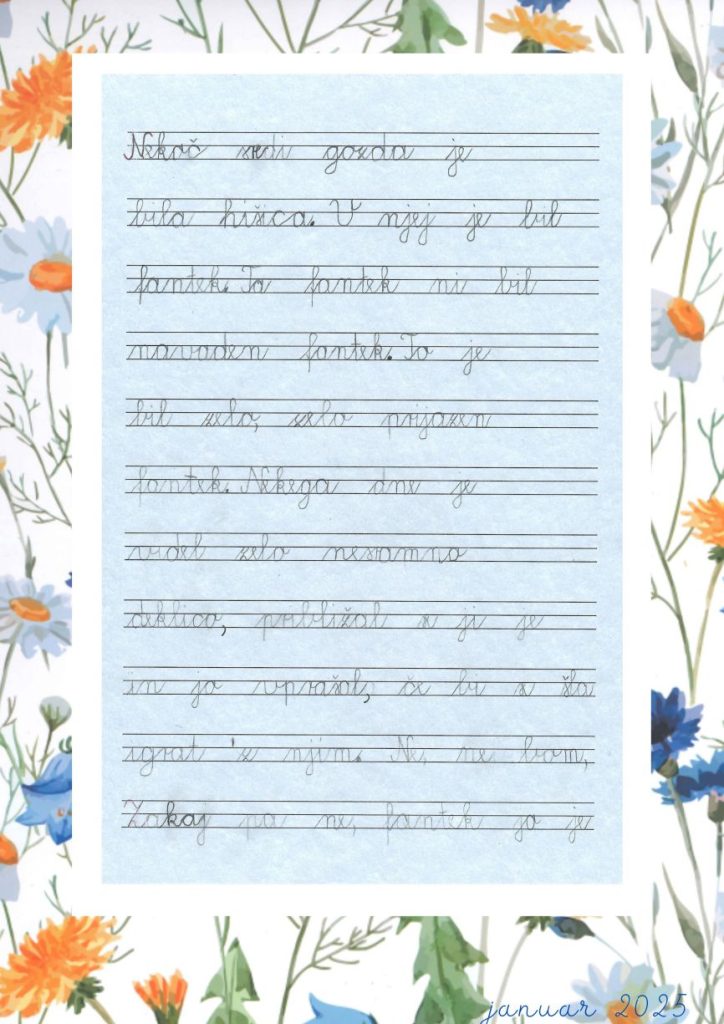 Nekoč sredi gozda je
bila hišica. V njej je bil
fantek. Ta fantek ni bil
navaden fantek. To je
bil zelo, zelo prijazen
fantek. Nekega dne je
videl zelo nesramno
deklico, približal se ji je
in jo vprašal, če bi se šla
igrat z njim. Ne, ne bom,
Zakaj pa ne, fantek jo je
januar 2025